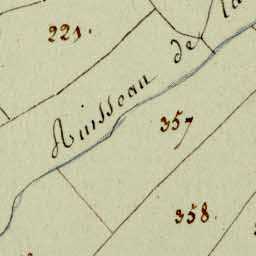 221.
Ruisseau de la
357
358.